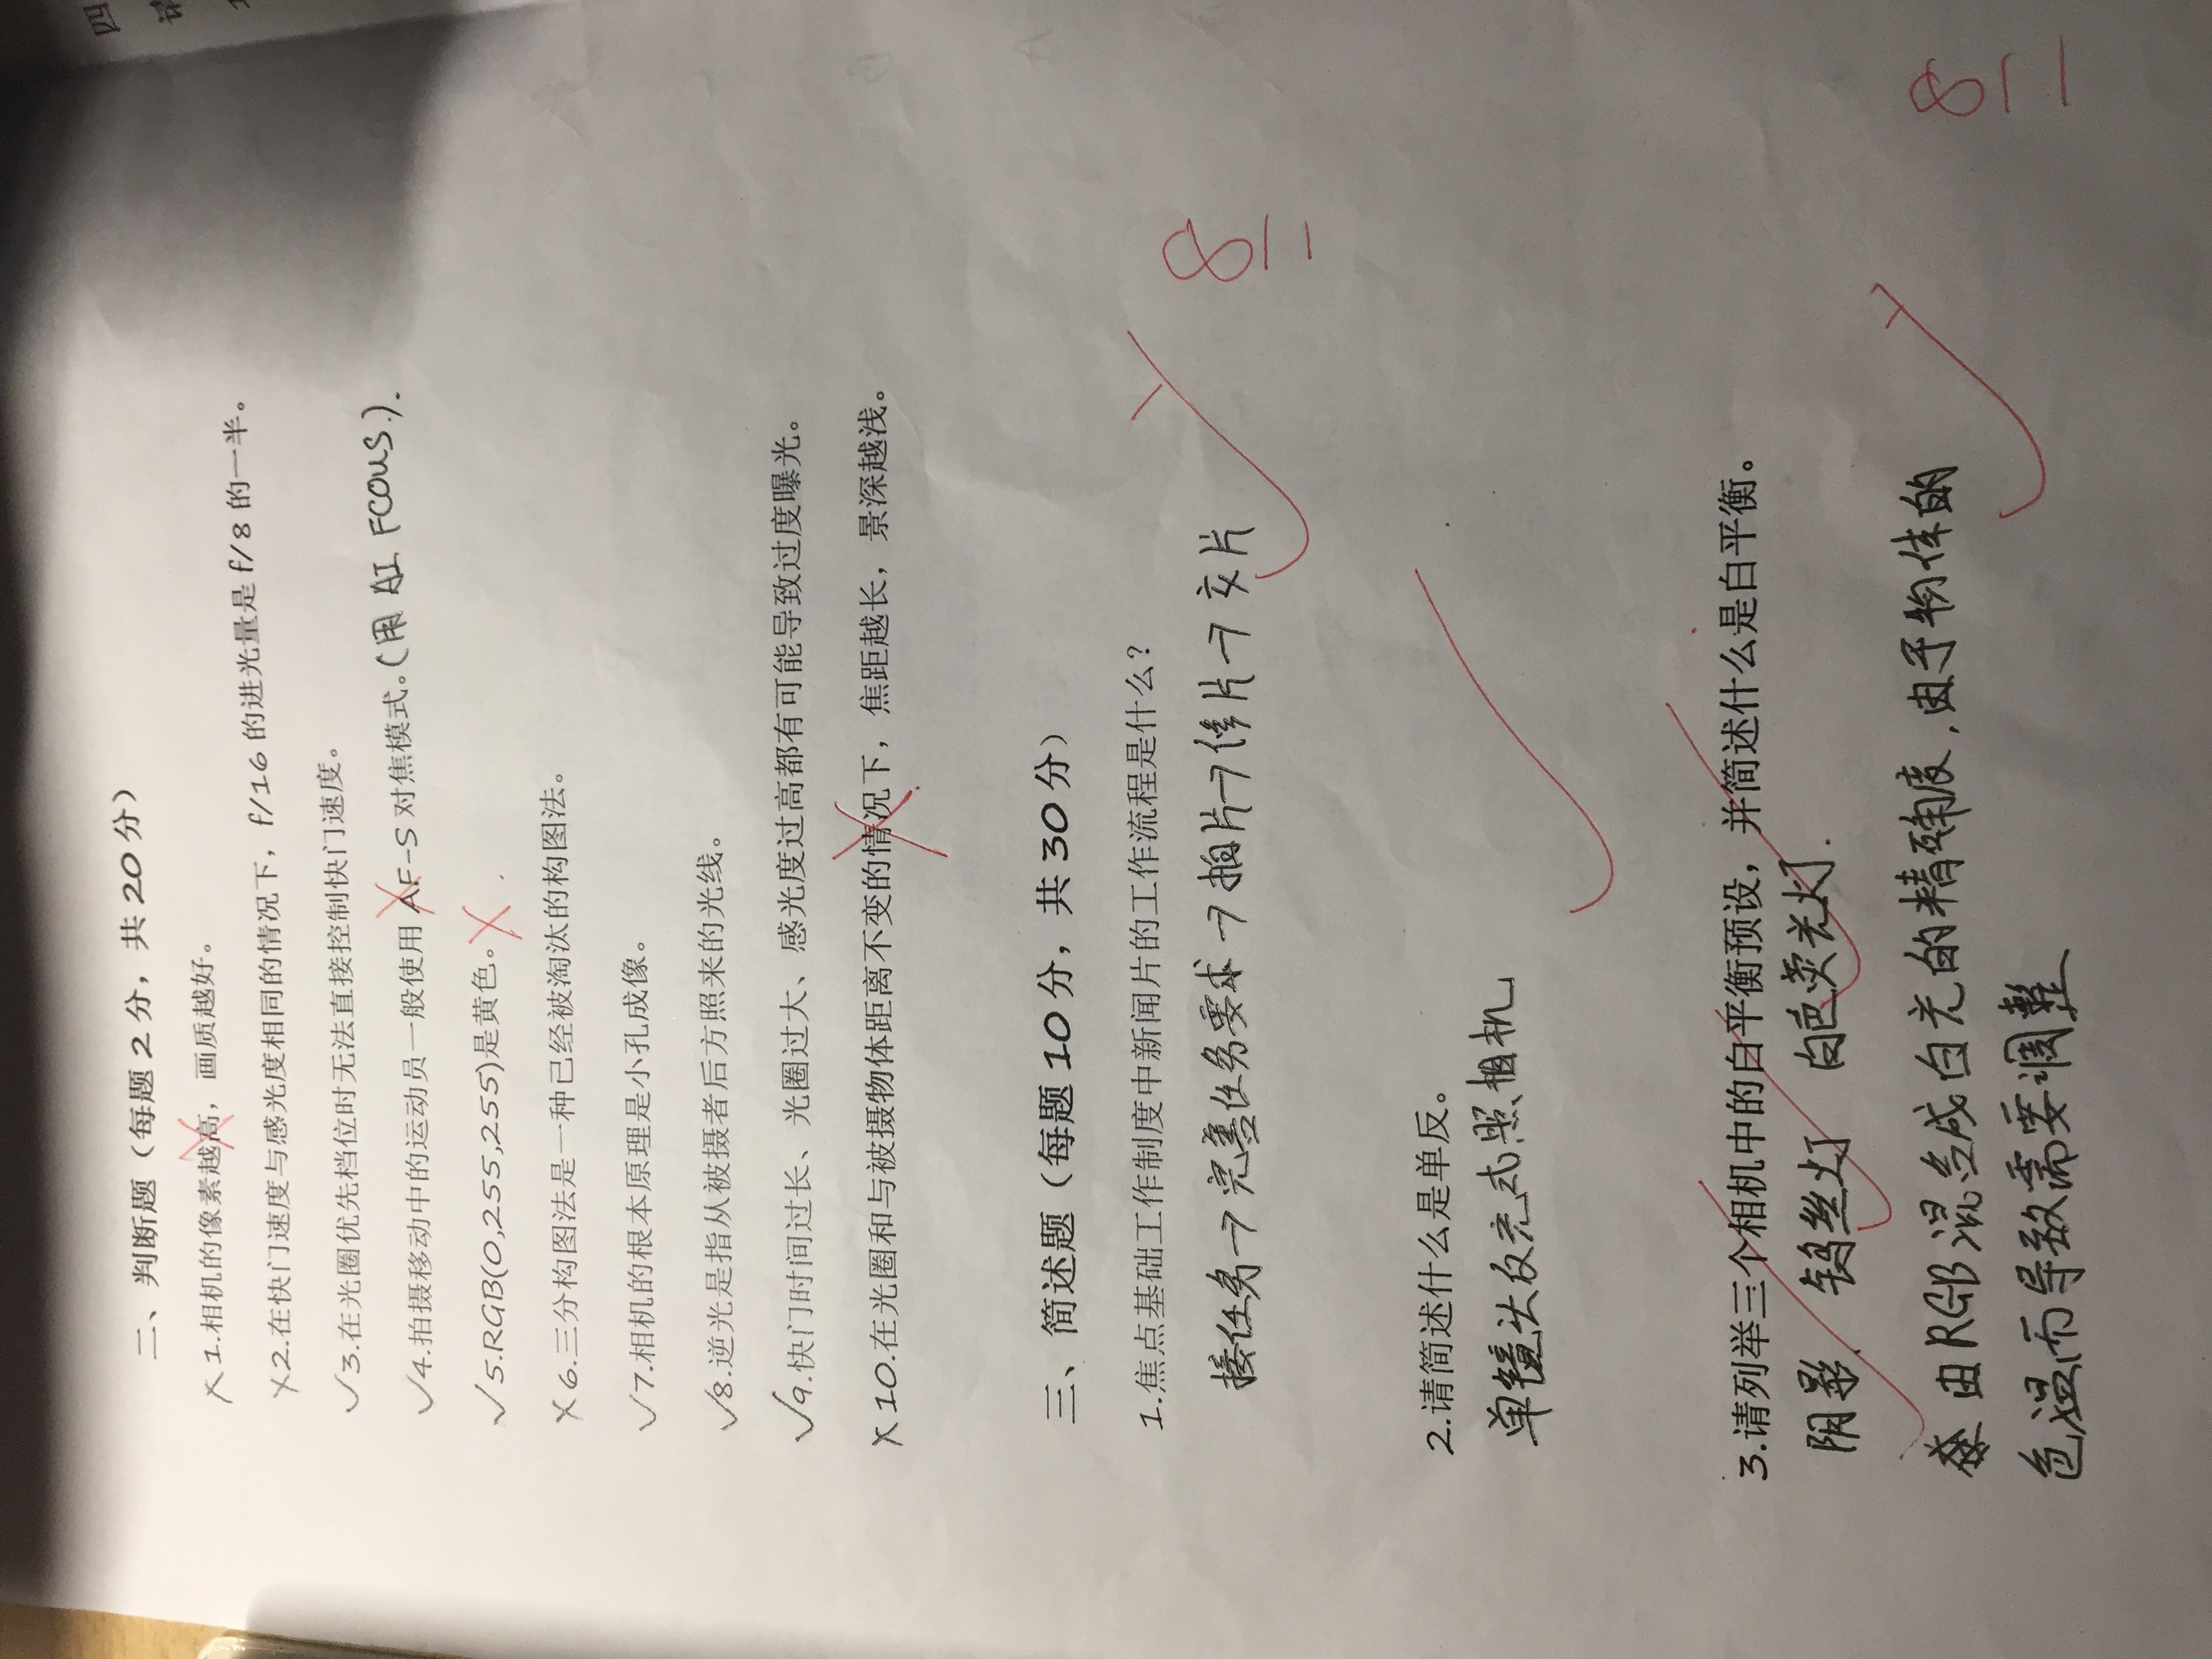 二、判断题（每题2分，共20分）
×1.相机的像素越高，画质越好。
×2.在快门速度与感光度相同的情况下，f/16的进光量是f/8的一半。
✓3.在光圈优先档位时无法直接控制快门速度。
✓4.拍摄移动中的运动员一般使用AF-S对焦模式。（用 AI FCOUS.）.
✓5.RGB(0,255,255)是黄色。×
×6.三分构图法是一种已经被淘汰的构图法。
✓7.相机的根本原理是小孔成像。
✓8.逆光是指从被摄者后方照来的光线。
✓9.快门时间过长、光圈过大、感光度过高都有可能导致过度曝光。
×10.在光圈和与被摄物体距离不变的情况下，焦距越长，景深越浅。
三、简述题（每题10分，共30分）
1.焦点基础工作制度中新闻片的工作流程是什么？
接任务→完善任务要求→拍片→修片→交片
8
2.请简述什么是单反。
单镜头反光式照相机
3.请列举三个相机中的白平衡预设，并简述什么是白平衡。
阴影、 钨丝灯 白色荧光灯.
由RGB混合成白光的精确度，由于物体的
8
色温而导致需要调整
四
请